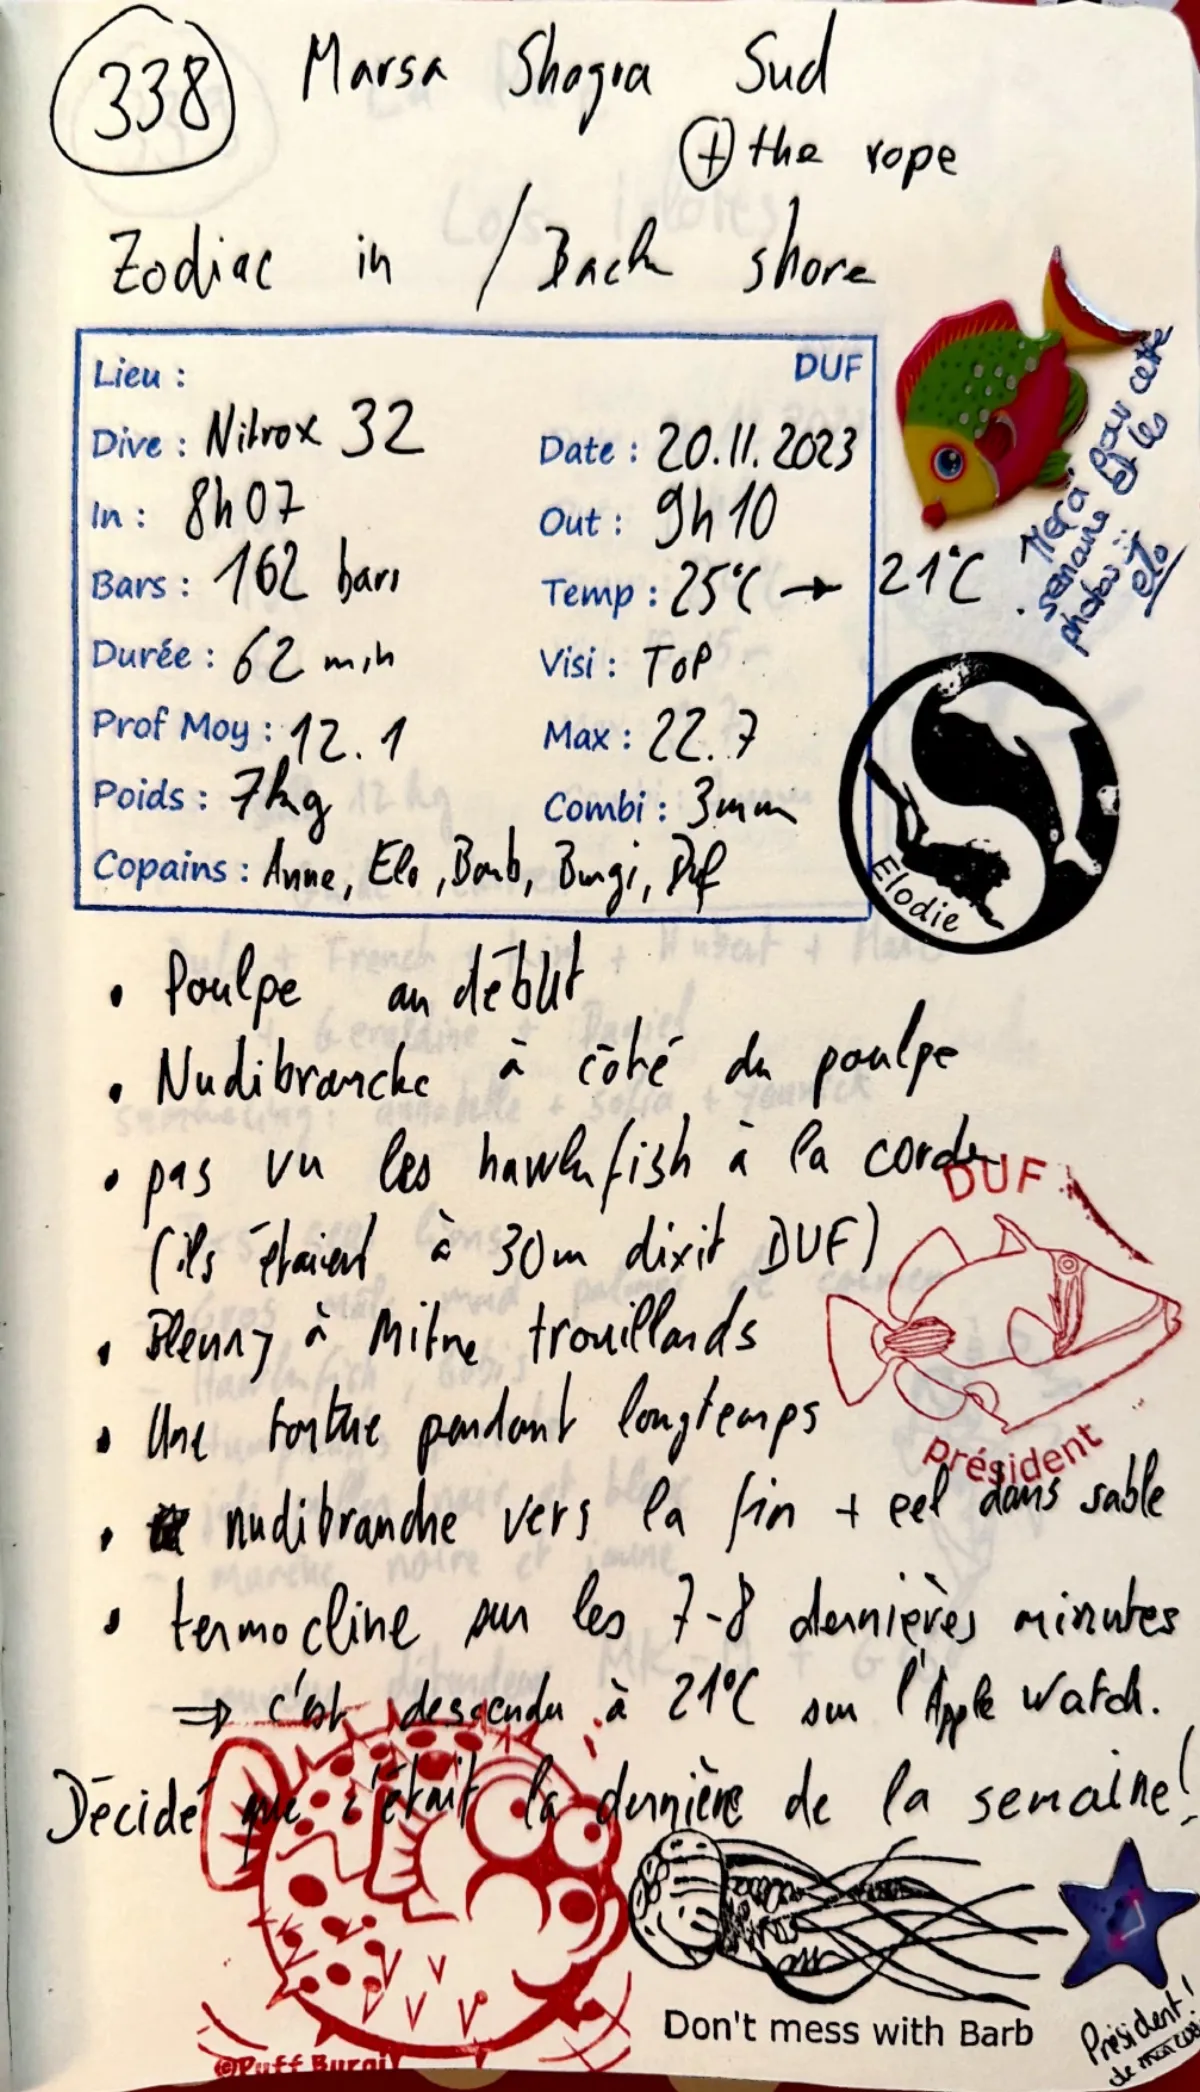 338 Marsa Shagra Sud
+ the rope
Zodiac in / Back shore
Lieu : DUF
Dive : Nitrox 32 Date : 20.11.2023
In : 8h07 Out : 9h10
Bars : 162 bars Temp : 25°C → 21°C
Durée : 62 min Visi : ToP
Prof Moy : 12.1 Max : 22.7
Poids : 7kg Combi : 3mm
Copains : Anne, Elo, Barb, Burgi, Duf
Merci pour cette
semaine et les
photos !!!
elo
Elodie
• Poulpe au début
• Nudibranche à côté du poulpe
• pas vu les hawkfish à la corde
(ils étaient à 30m dixit DUF)
DUF
• Blenny à Mitre trouillards
• Une tortue pendant longtemps
président
• nudibranche vers la fin + eel dans sable
• termocline sur les 7-8 dernières minutes
⇒ c'est descendu à 21°C sur l'Apple Watch.
Décidé que c'était la dernière de la semaine!
©Puff Burgi
Don't mess with Barb
Président!
de mon